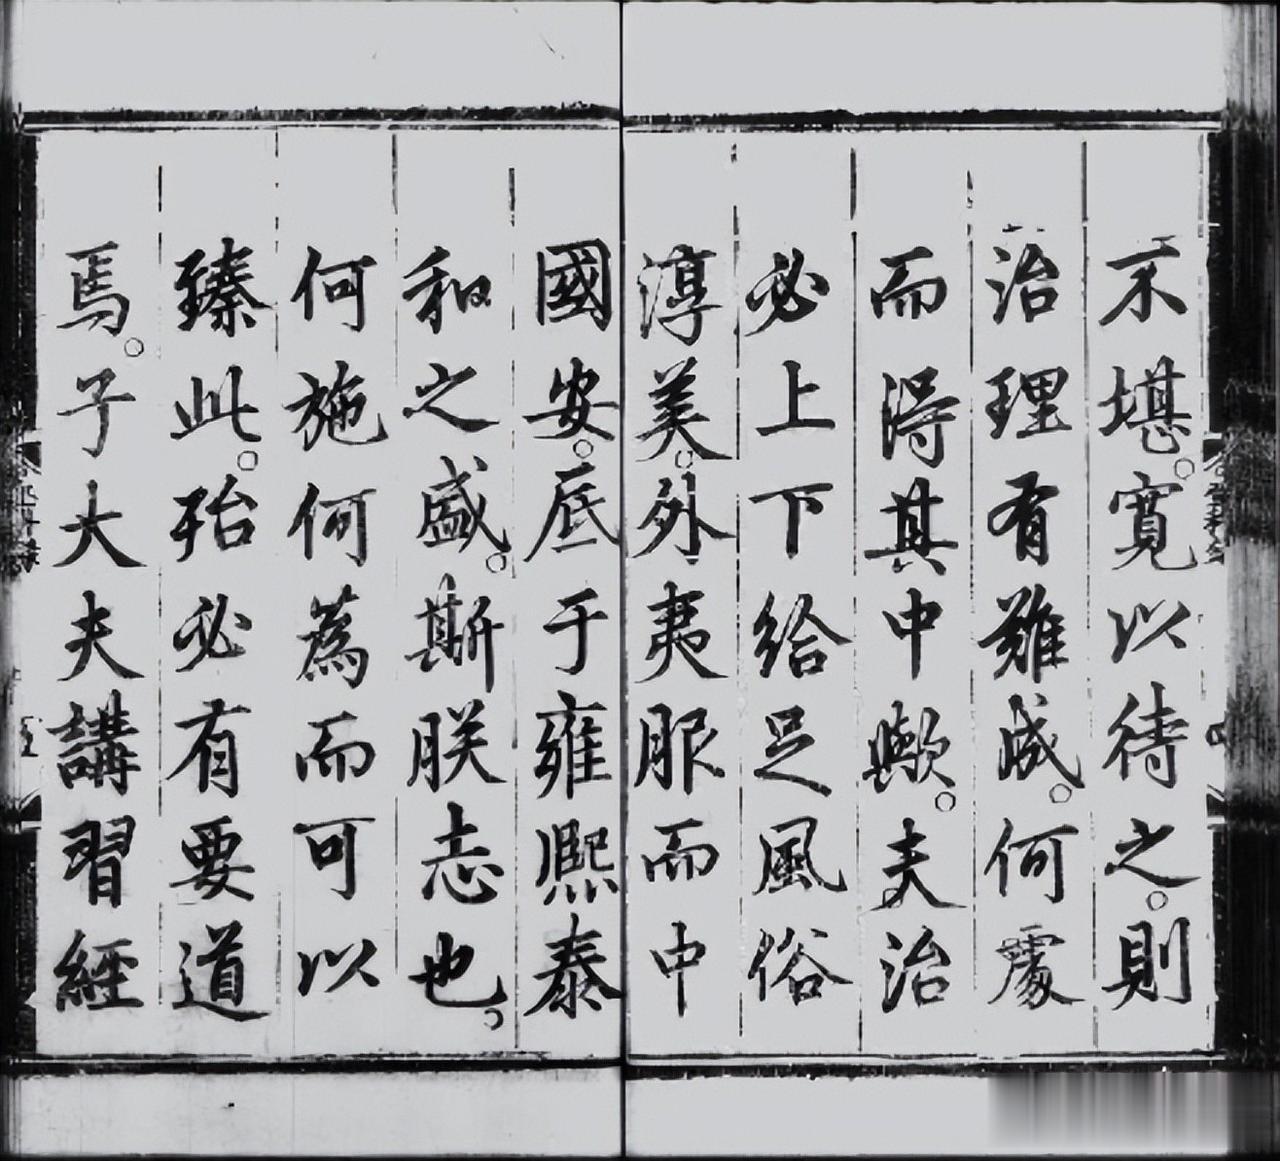 不堪。寬以待之。則
治理有難成。何處
而得其中歟。夫治
必上下給足風俗
淳美。外夷服而中
國安。底于雍熙泰
和之盛。斯朕志也。
何施何為而可以
臻此。殆必有要道
焉。子大夫講習經